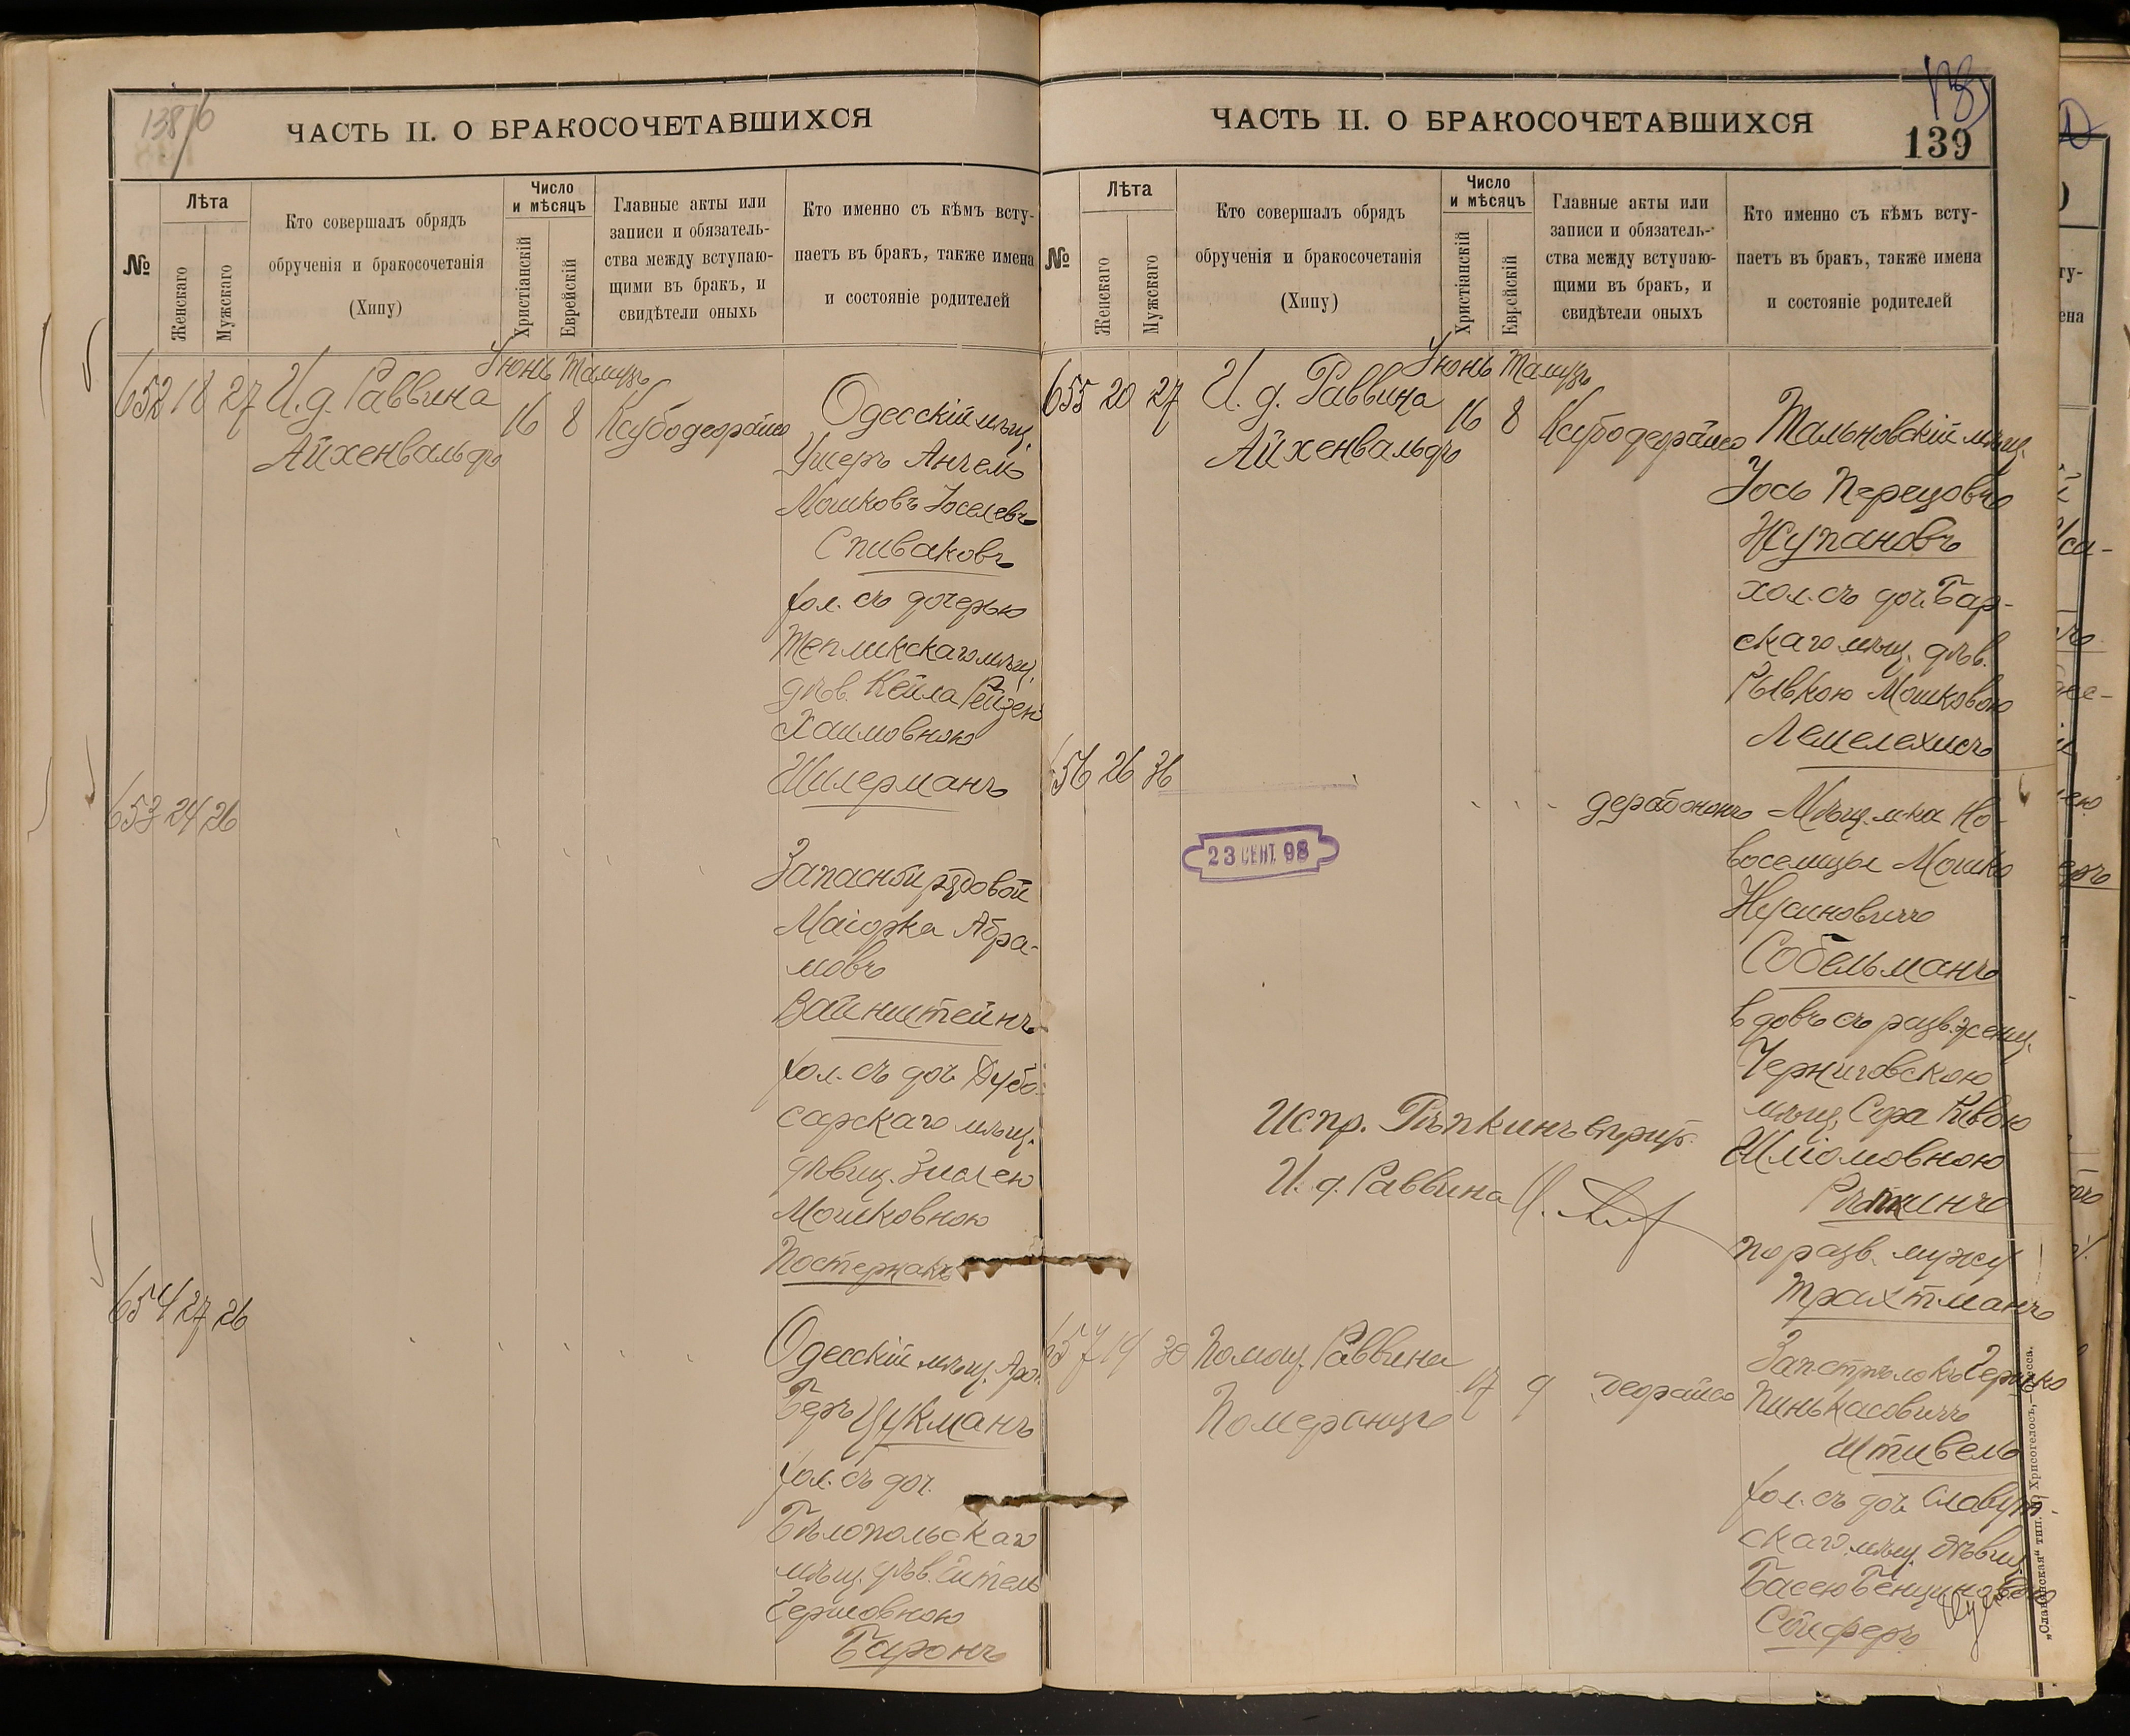 138/б
ЧАСТЬ II. О БРАКОСОЧЕТАВШИХСЯ
№
Лѣта
Женскаго
Мужскаго
Кто совершалъ обрядъ
обрученія и бракосочетанія
(Хипу)
Число
и мѣсяцъ
Христіанскій
Еврейскій
Главные акты или
записи и обязатель-
ства между вступаю-
щими въ бракъ, и
свидѣтели оныхъ
Кто именно съ кѣмъ всту-
паетъ въ бракъ, также имена
и состояніе родителей
Іюнь Тамузъ
652 18 27 И. д. Раввина
Айхенвальдъ
16 8 Ксубодеорайсо
Одесскій мѣщ.
Ушеръ Анчель
Мошковъ Іоселевъ
Спиваковъ
хол. съ дочерью
Тепликскаго мѣщ.
дѣв. Кейла Рейзею
Хаимовною
Шилерманъ
653 24 26
Запасной рядовой
Маіорка Абра-
мовъ
Вайнштейнъ
хол. съ доч. Дубо-
сарскаго мѣщ.
дѣвиц. Зислею
Мошковною
Постернакъ
654 27 26
Одесскій мѣщ. Арон
Беръ Цукманъ
хол. съ доч.
Бѣлопольскаго
мѣщ. дѣв. Эйтель
Гершовною
Баронъ
ЧАСТЬ II. О БРАКОСОЧЕТАВШИХСЯ
139
№
Лѣта
Женскаго
Мужскаго
Кто совершалъ обрядъ
обрученія и бракосочетанія
(Хипу)
Число
и мѣсяцъ
Христіанскій
Еврейскій
Главные акты или
записи и обязатель-
ства между вступаю-
щими въ бракъ, и
свидѣтели оныхъ
Кто именно съ кѣмъ всту-
паетъ въ бракъ, также имена
и состояніе родителей
Іюнь Тамузъ
655 20 27 И. д. Раввина
Айхенвальдъ
16 8 Ксубодеорайсо
Тальновскій мѣщ.
Іось Перецовъ
Жупановъ
хол. съ доч. Бар-
скаго мѣщ. дѣв.
Рывкою Мошковою
Лемелехисъ
656 26 36
дерабононъ
Мѣщ. м-ка Но-
воселицы Мошко
Нусиновичъ
Собельманъ
вдовъ съ разв. женщ.
Черниговскою
мѣщ. Сора Ривою
Шліомовною
Рѣпкинъ
по разв. мужу
Трахтманъ
23 СЕНТ. 98
Испр. Рѣпкинъ вѣрит.
И. д. Раввина
657 19 30 Помощ. Раввина
Померанцъ
17 9 деорайсо
Зап. стрѣлокъ Гершко
Пинькасовичъ
Штивель
хол. съ доч. Славут-
скаго мѣщ. дѣвиц.
Басею Бенціоновною
Сойферъ
„Славянская“ тип. Хрисогелосъ,—Одесса.